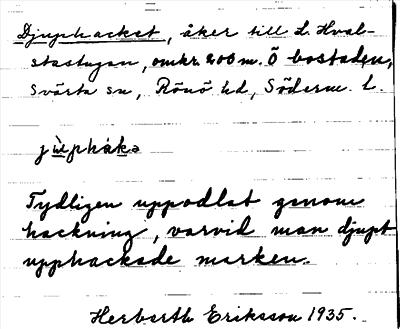 Djuphacket, åker till L. Hval-
stastugan, omkr. 200 m. Ö bostaden,
Svärta sn, Rönö hd, Söderm. l.
jùphákə
Tydligen uppodlat genom
hackning, varvid man djupt
upphackade marken.
Herbarth Eriksson 1935.